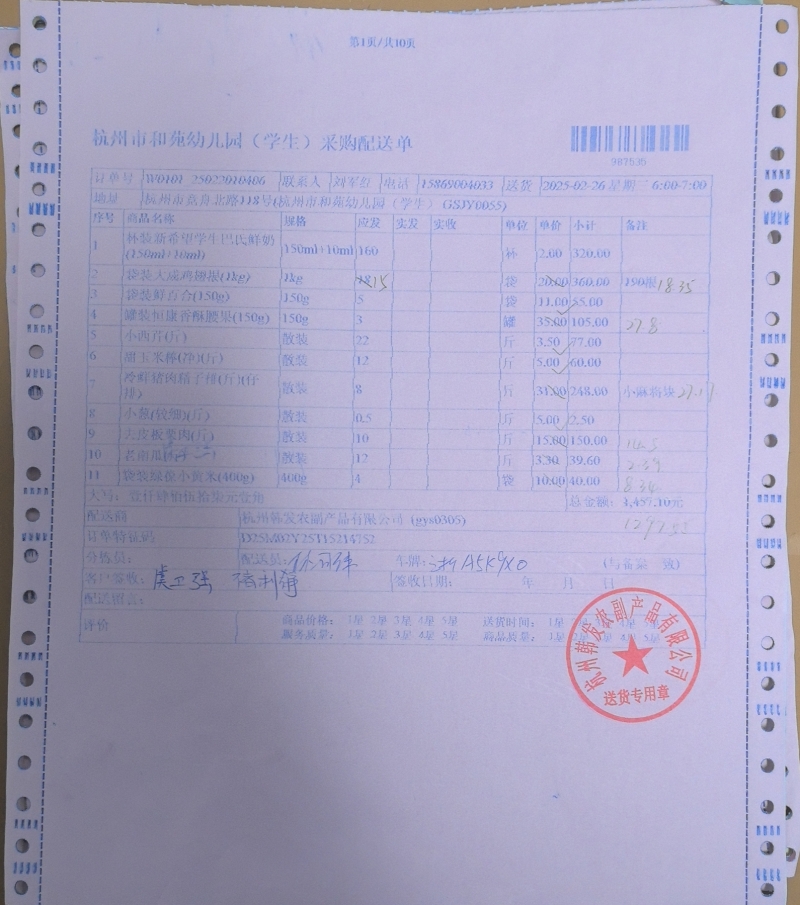 第1页/共10页
杭州市和苑幼儿园（学生）采购配送单
987535
订单号 W0101-25022010406 联系人 电话 15869004033 送货 2025-02-26 星期 6:00-7:00
地址 118号(杭州市和苑幼儿园（学生） GSJY0055)
序号 商品名称 规格 应发 实发 实收 单位 单价 小计 备注
1 杯装新希望学生巴氏鲜奶(150ml+10ml) 150ml+10ml 160 杯 2.00 320.00
2 袋装大成鸡翅根(1kg) 1kg 18 15 袋 20.00 360.00 190根 18.35
3 袋装鲜百合(150g) 150g 5 袋 11.00 55.00
4 罐装恒康香酥腰果(150g) 150g 3 罐 35.00 105.00 27.8
5 小西芹(斤) 散装 22 斤 3.50 77.00
6 甜玉米棒(净)(斤) 散装 12 斤 5.00 60.00
7 冷鲜猪肉精子排(斤)(仔排) 散装 8 斤 31.00 248.00 小麻将块
8 小葱(较细)(斤) 散装 0.5 斤 5.00 2.50
9 去皮板栗肉(斤) 散装 10 斤 15.00 150.00
10 老南瓜 散装 12 斤 3.30 39.60
11 袋装绿俊小黄米(400g) 400g 4 袋 10.00 40.00
大写：壹仟肆佰伍拾柒元壹角 总金额：1,457.10元
配送商 杭州韩发农副产品有限公司 (gys0305)
订单特征码
分拣员： 配送员： 车牌：浙A5K9X0
客户签收： 虞卫强 签收日期： 年 月 日
配送留言：
评价 商品价格： 1星 2星 3星 4星 5星 送货时间： 1星
服务质量： 1星 2星 3星 4星 5星 商品质量：
杭州韩发农副产品有限公司
送货专用章